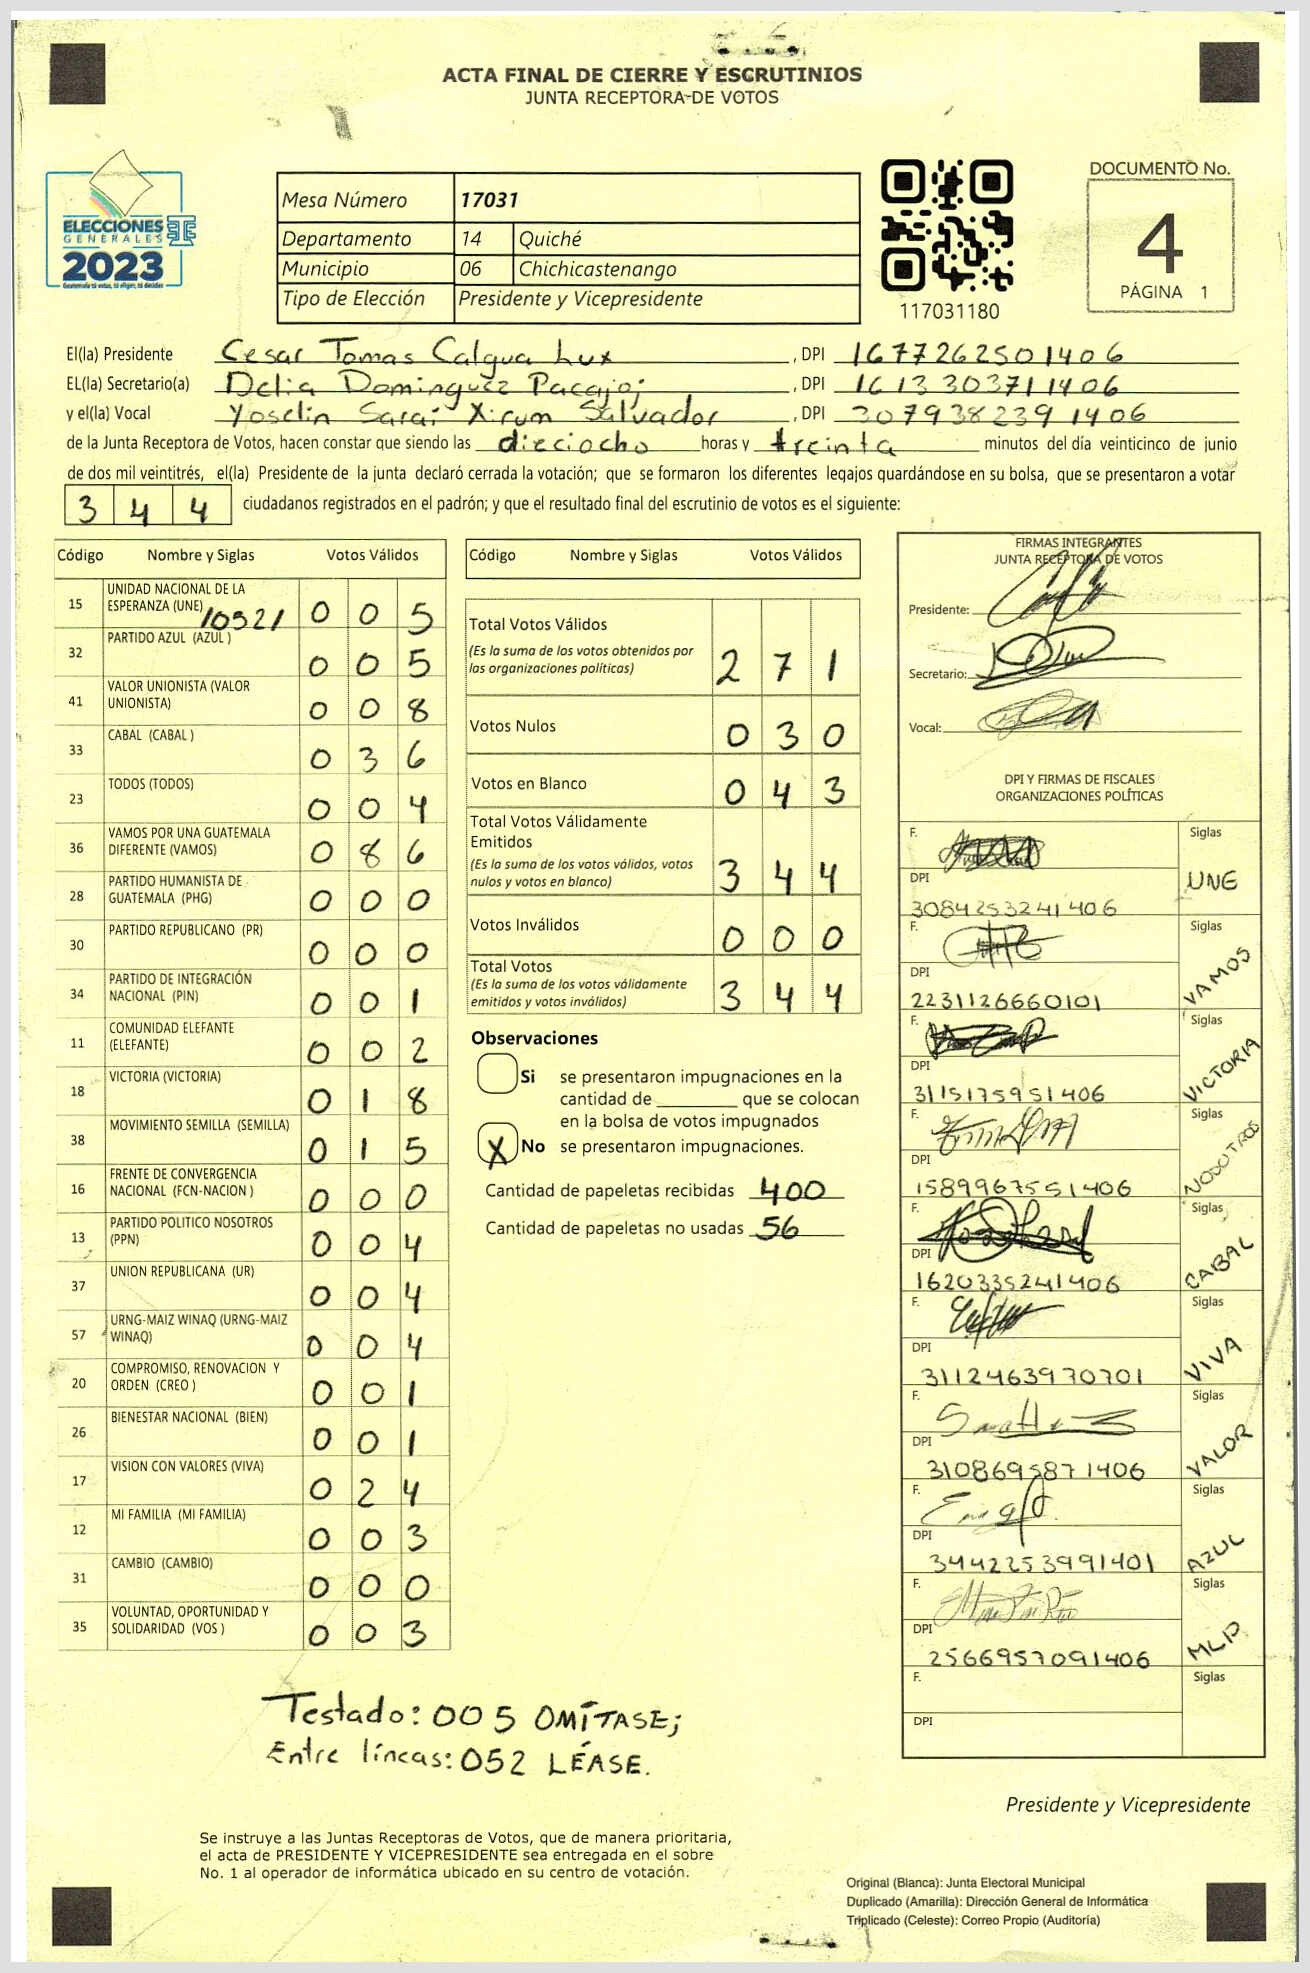 ACTA FINAL DE CIERRE Y ESCRUTINIOS
JUNTA RECEPTORA DE VOTOS
ELECCIONES
GENERALES
2023
Guatemala tú votas, tú eliges, tú decides
Mesa Número 17031
Departamento 14 Quiché
Municipio 06 Chichicastenango
Tipo de Elección Presidente y Vicepresidente
117031180
DOCUMENTO No.
4
PÁGINA 1
El(la) Presidente Cesar Tomas Calgua Lux, DPI 1677262501406
EL(la) Secretario(a) Delia Dominguez Pacajoj, DPI 1613303711406
y el(la) Vocal Yoselin Sarai Xirum Salvador, DPI 3079382391406
de la Junta Receptora de Votos, hacen constar que siendo las dieciocho horas y treinta minutos del día veinticinco de junio
de dos mil veintitrés, el(la) Presidente de la junta declaró cerrada la votación; que se formaron los diferentes legajos guardándose en su bolsa, que se presentaron a votar
344 ciudadanos registrados en el padrón; y que el resultado final del escrutinio de votos es el siguiente:
Código Nombre y Siglas Votos Válidos
15 UNIDAD NACIONAL DE LA
ESPERANZA (UNE) 10321 005
32 PARTIDO AZUL (AZUL ) 005
41 VALOR UNIONISTA (VALOR
UNIONISTA) 008
33 CABAL (CABAL ) 036
23 TODOS (TODOS) 004
36 VAMOS POR UNA GUATEMALA
DIFERENTE (VAMOS) 086
28 PARTIDO HUMANISTA DE
GUATEMALA (PHG) 000
30 PARTIDO REPUBLICANO (PR) 000
34 PARTIDO DE INTEGRACIÓN
NACIONAL (PIN) 001
11 COMUNIDAD ELEFANTE
(ELEFANTE) 002
18 VICTORIA (VICTORIA) 018
38 MOVIMIENTO SEMILLA (SEMILLA) 015
16 FRENTE DE CONVERGENCIA
NACIONAL (FCN-NACION ) 000
13 PARTIDO POLITICO NOSOTROS
(PPN) 004
37 UNION REPUBLICANA (UR) 004
57 URNG-MAIZ WINAQ (URNG-MAIZ
WINAQ) 004
20 COMPROMISO, RENOVACION Y
ORDEN (CREO ) 001
26 BIENESTAR NACIONAL (BIEN) 001
17 VISION CON VALORES (VIVA) 024
12 MI FAMILIA (MI FAMILIA) 003
31 CAMBIO (CAMBIO) 000
35 VOLUNTAD, OPORTUNIDAD Y
SOLIDARIDAD (VOS ) 003
Testado: 005 OMÍTASE;
Entre líneas: 052 LÉASE.
Código Nombre y Siglas Votos Válidos
Total Votos Válidos
(Es la suma de los votos obtenidos por
las organizaciones políticas) 271
Votos Nulos 030
Votos en Blanco 043
Total Votos Válidamente
Emitidos
(Es la suma de los votos válidos, votos
nulos y votos en blanco) 344
Votos Inválidos 000
Total Votos
(Es la suma de los votos válidamente
emitidos y votos inválidos) 344
Observaciones
Si se presentaron impugnaciones en la
cantidad de ________ que se colocan
en la bolsa de votos impugnados
X No se presentaron impugnaciones.
Cantidad de papeletas recibidas 400
Cantidad de papeletas no usadas 56
FIRMAS INTEGRANTES
JUNTA RECEPTORA DE VOTOS
Presidente:
Secretario:
Vocal:
DPI Y FIRMAS DE FISCALES
ORGANIZACIONES POLÍTICAS
F. Siglas
DPI UNE
3084253241406
F. Siglas
DPI VAMOS
2231126660101
F. Siglas
DPI VICTORIA
3115175951406
F. Siglas
DPI NOSOTROS
1589967551406
F. Siglas
DPI CABAL
1620335241406
F. Siglas
DPI VIVA
3112463970701
F. Siglas
DPI VALOR
3108695871406
F. Siglas
DPI AZUL
3442253991401
F. Siglas
DPI MLP
2566957091406
F. Siglas
DPI
Presidente y Vicepresidente
Se instruye a las Juntas Receptoras de Votos, que de manera prioritaria,
el acta de PRESIDENTE Y VICEPRESIDENTE sea entregada en el sobre
No. 1 al operador de informática ubicado en su centro de votación.
Original (Blanca): Junta Electoral Municipal
Duplicado (Amarilla): Dirección General de Informática
Triplicado (Celeste): Correo Propio (Auditoría)